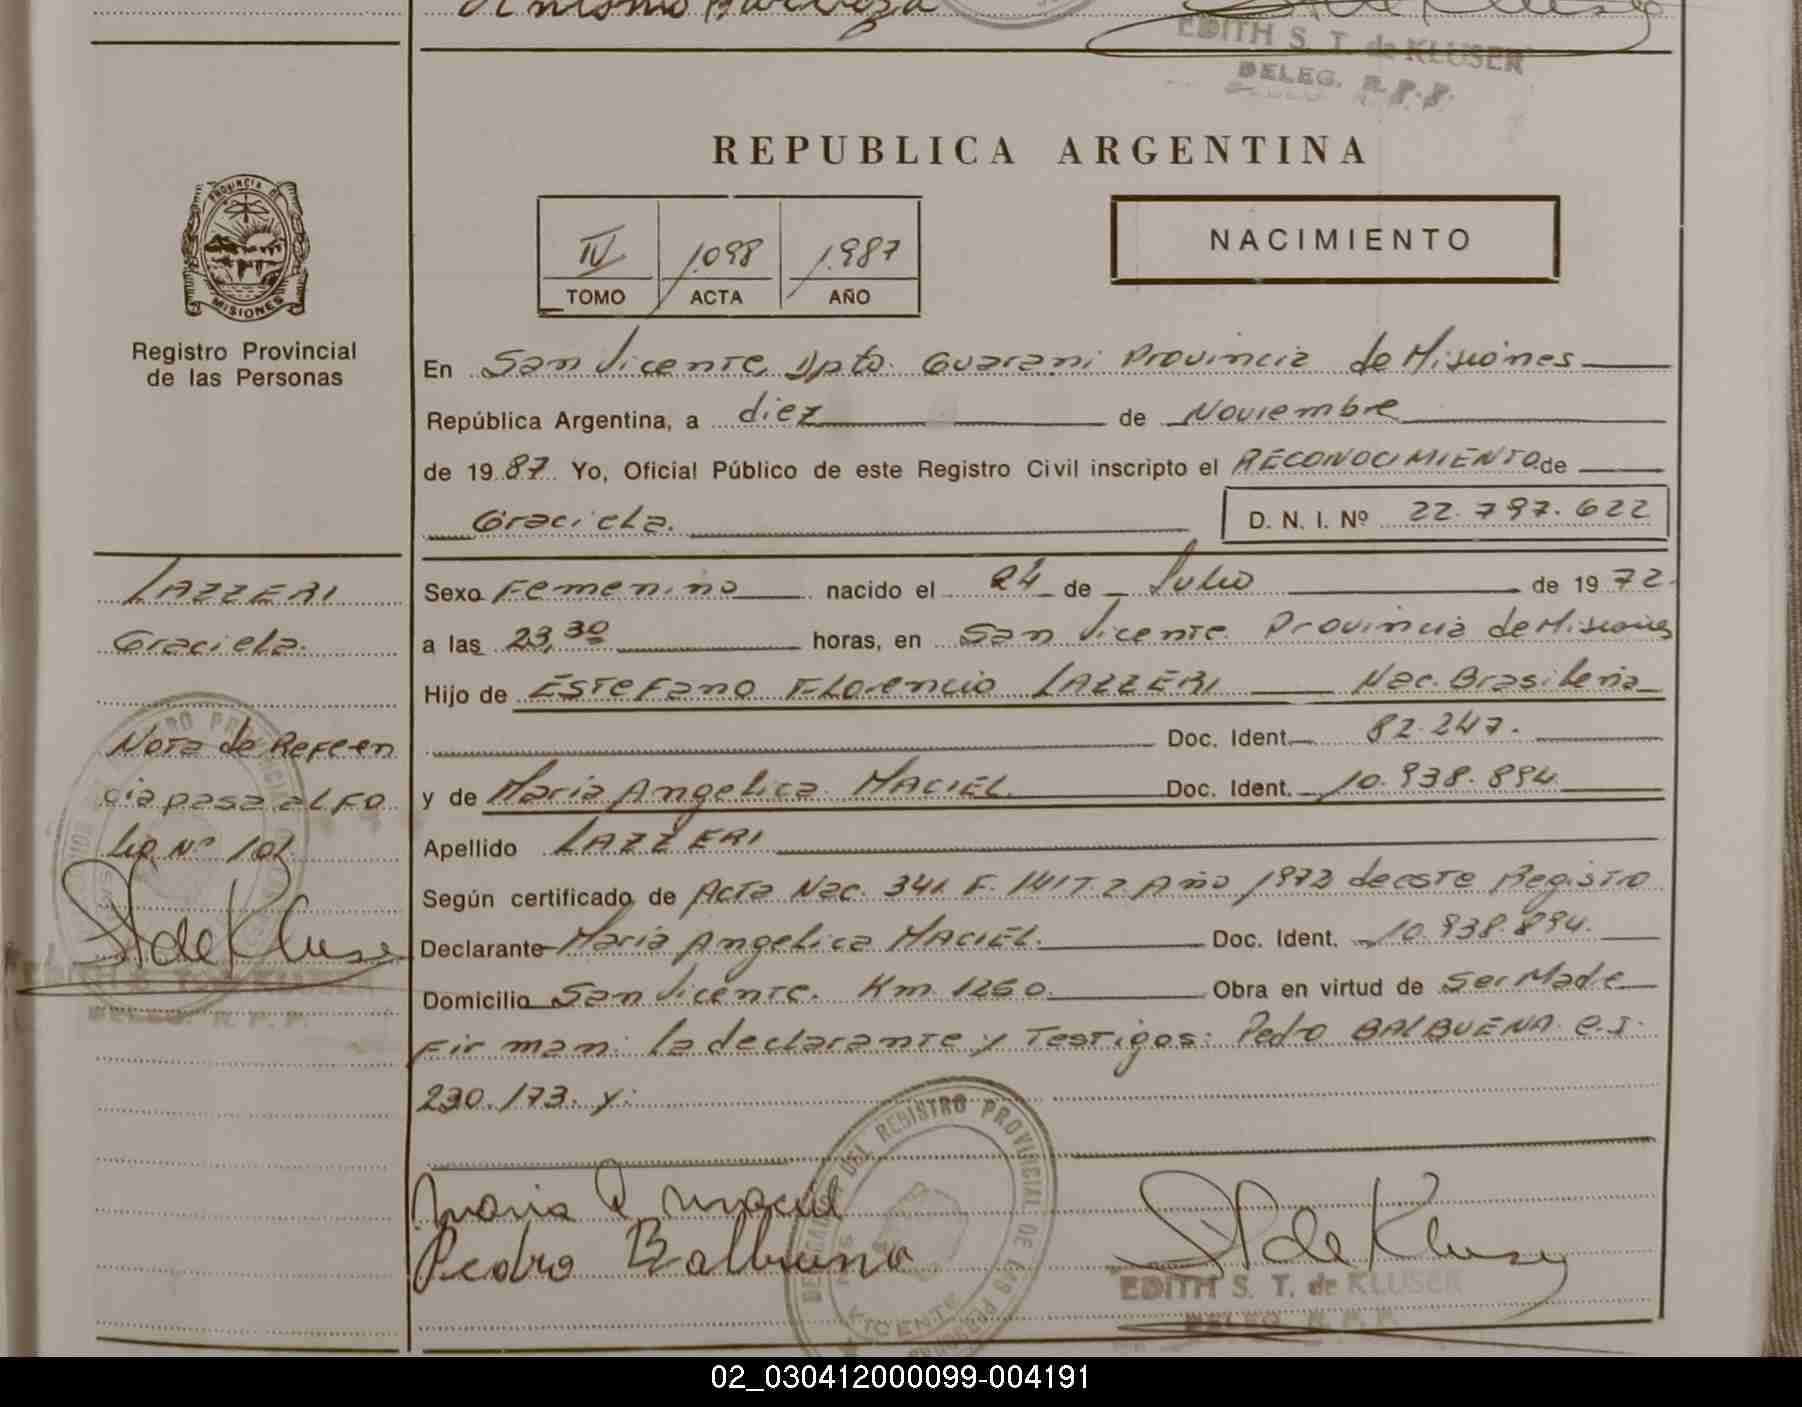 Antonio Barboza
EDITH S. T. de KLUSER
DELEG. R. P. P.
REPUBLICA ARGENTINA
PROVINCIA D
MISIONES
Registro Provincial
de las Personas
IV 1.098 1.987
TOMO ACTA AÑO
NACIMIENTO
En San Vicente, Dpto. Guarani Provincia de Misiones
República Argentina, a diez de Noviembre
de 19 87. Yo, Oficial Público de este Registro Civil inscripto el RECONOCIMIENTO de
Graciela. D. N. I. Nº 22.797.622
LAZZERI
Graciela.
Nota de Referen
cia pasa al Fo
lio Nº 101
EDITH S. T. de KLUSER
DELEG. R. P. P.
Sexo Femenino nacido el 24 de Julio de 19 72.
a las 23,30 horas, en San Vicente. Provincia de Misiones
Hijo de Estefano Florencio LAZZERI Nac. Brasileña
Doc. Ident. 82.247.
y de Maria Angelica MACIEL. Doc. Ident. 10.938.894
Apellido LAZZERI
Según certificado de Acta Nac. 341. F. 141 T. 2 Año 1972 de este Registro
Declarante Maria Angelica MACIEL. Doc. Ident. 10.938.894.
Domicilio San Vicente. Km 1260. Obra en virtud de Ser Madre
Firman: la declarante y Testigos: Pedro BALBUENA. C.I.
230.173. y:
Maria A Maciel
Pedro Balbuena
REGISTRO PROVINCIAL DE LAS
VICENTE
EDITH S. T. de KLUSER
DELEG. R. P. P.
02_030412000099-004191